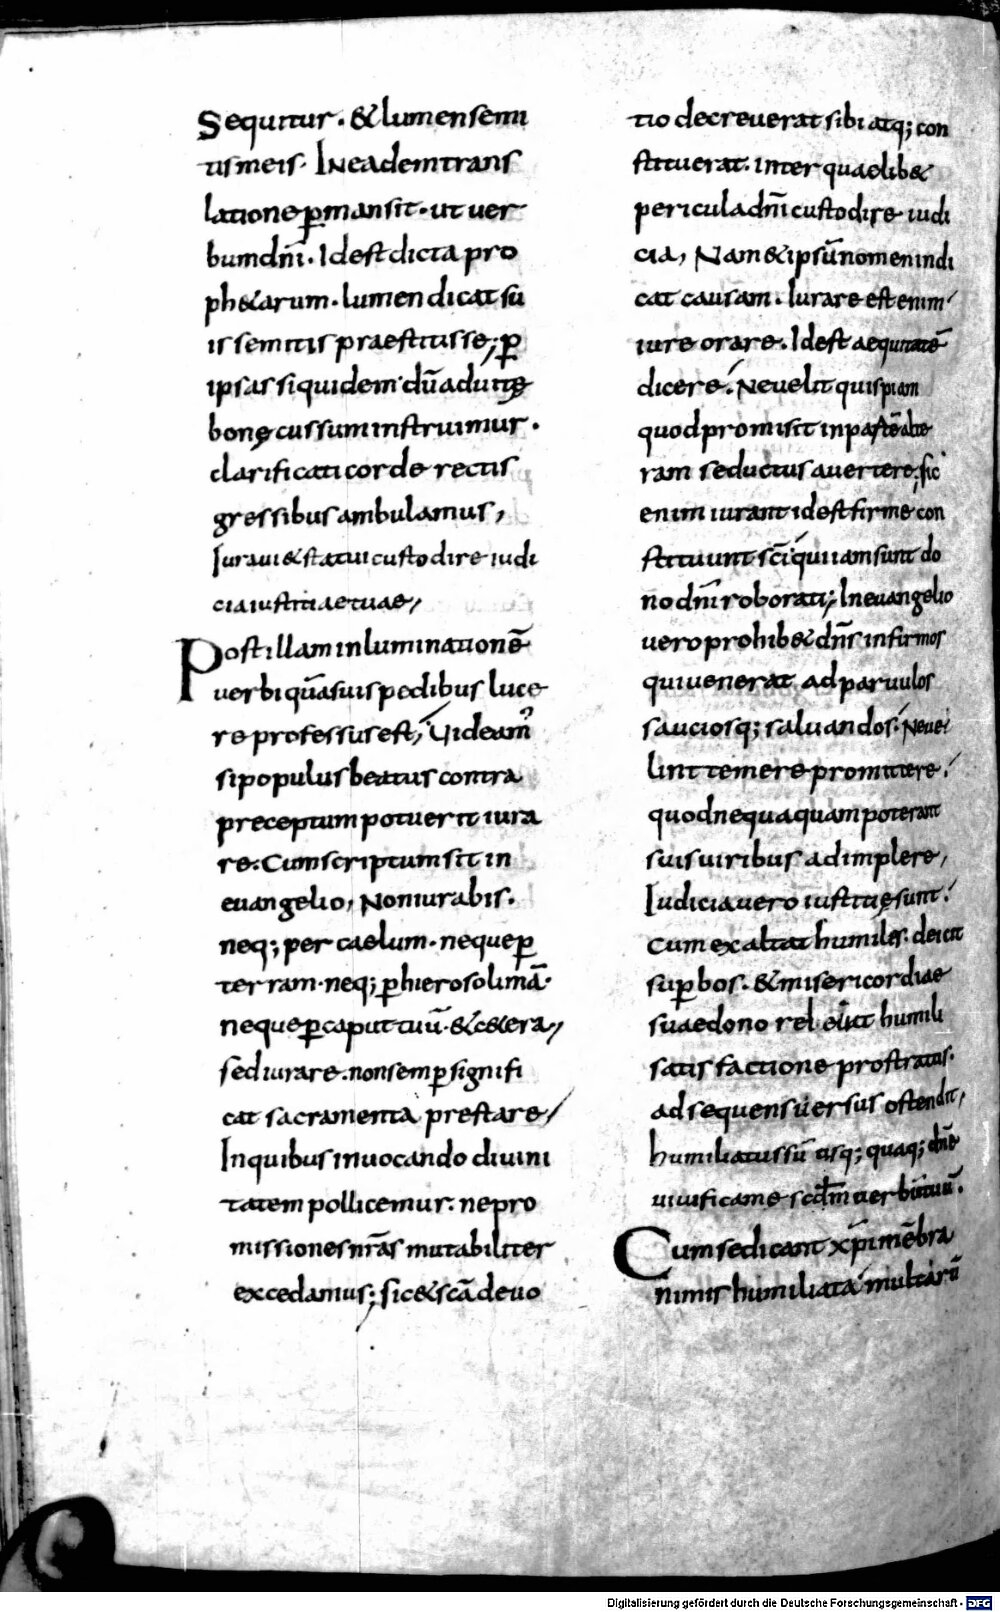 Sequitur. & lumen semi
tis meis. In eadem trans
latione pmansit. ut uer
bum dn̄i. Id est dicta pro
ph&arum. lumen dicat su
is semitis praestitisse; p̄
ipsas siquidem dū ad uitę
bonę cussum instruimur.
clarificati corde rectis
gressibus ambulamus,
Iuraui & statui custodire iudi
cia iustitiae tuae,
Post illam inluminationē
uerbi quā suis pedibus luce
re professus est, Uideam᾿
si populus beatus contra
preceptum potuerit iura
re. Cum scriptum sit in
euangelio, Non iurabis.
neq; per caelum. neque p̄
terram. neq; p̄ hierosolimā.
neque p̄ caput tuū. & c&era,
sed iurare. non semp̄ signifi
cat sacramenta prestare,
In quibus inuocando diuini
tatem pollicemur. ne pro
missiones nr̄as mutabiliter
excedamus; sic & scā deuo
tio decreuerat sibi atq; con
stituerat. inter quaelib&
pericula dn̄i custodire iudi
cia, Nam & ipsū nomen indi
cat causam. Iurare est enim
iure orare. Id est aequitatē
dicere. Ne uelit quispiam
quod promisit in partē alte
ram seductus auertere; sic
enim iurant id est firme con
stituunt sc̄i qui iam sunt do
no dn̄i roborati; In euangelio
uero prohib& dn̄s infirmos
qui uenerat ad paruulos
sauciosq; saluandos. Ne ue
lint temere promittere.
quod nequaquam poterant
suis uiribus adimplere,
Iudicia uero iustitię sunt.
Cum exaltat humiles. deicit
sup̄bos. & misericordiae
suae dono releuat humili
satisfactione prostratus.
ad sequens uersus ostendit,
humiliatus sū usq; quaq; dn̄e
uiuifica me scdm uerbū tuū.
Cum se dicant xp̄i mēbra
nimis humiliata multarū